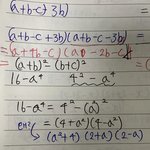 (a+b-c)+3b)
(a+b-c+3b)(a+b-c-3b)
=(a+4b-c)(a-2b-c)
(a+b)²-(b+c)²
16-a⁴ 4²-a⁴
16-a⁴ = 4²-(a²)²
=(4+a²)(4-a²)
(a²+4)(2+a)(2-a)